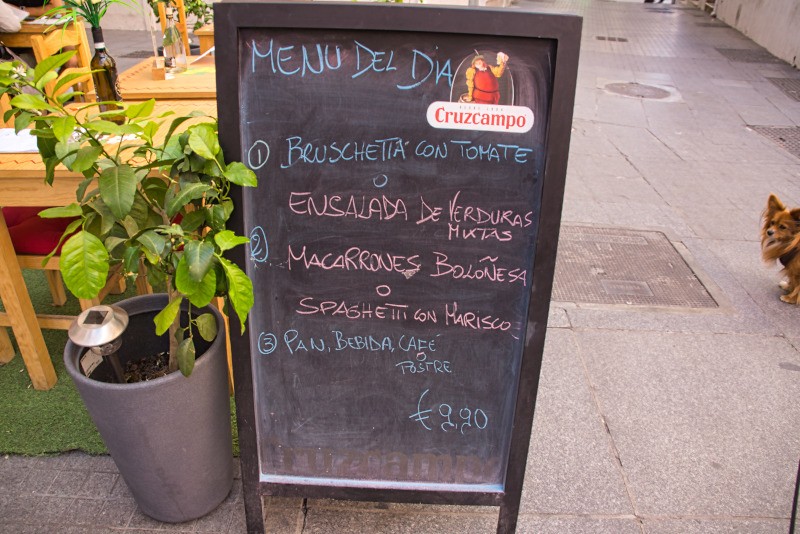 MENU DEL DÍA
Cruzcampo
① BRUSCHETTA CON TOMATE
O
ENSALADA DE VERDURAS
MIXTAS
② MACARRONES BOLOÑESA
O
SPAGHETTI CON MARISCO
③ PAN, BEBIDA, CAFÉ
O
POSTRE
€ 9,90
Cruzcampo